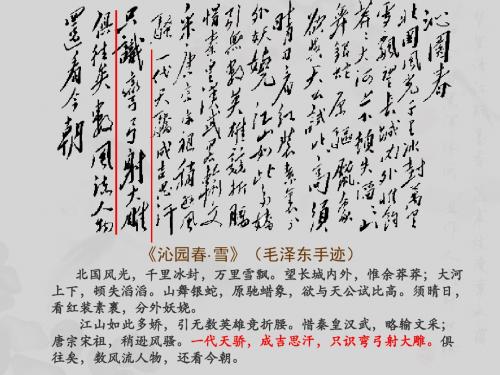 沁園春
北國風光千里冰封萬里
雪飄望長城內外惟餘
莽莽大河上下頓失滔滔山
舞銀蛇原驅臘象
欲與天公試比高須
晴日看紅裝素裹分
外妖嬈江山如此多嬌
引無數英雄競折腰
惜秦皇漢武略輸文
采唐宗宋祖稍遜風
騷一代天驕成吉思汗
只識彎弓射大雕
俱往矣數風流人物
還看今朝
《沁园春·雪》（毛泽东手迹）
北国风光，千里冰封，万里雪飘。望长城内外，惟余莽莽；大河
上下，顿失滔滔。山舞银蛇，原驰蜡象，欲与天公试比高。须晴日，
看红装素裹，分外妖娆。
江山如此多娇，引无数英雄竞折腰。惜秦皇汉武，略输文采；
唐宗宋祖，稍逊风骚。一代天骄，成吉思汗，只识弯弓射大雕。俱
往矣，数风流人物，还看今朝。